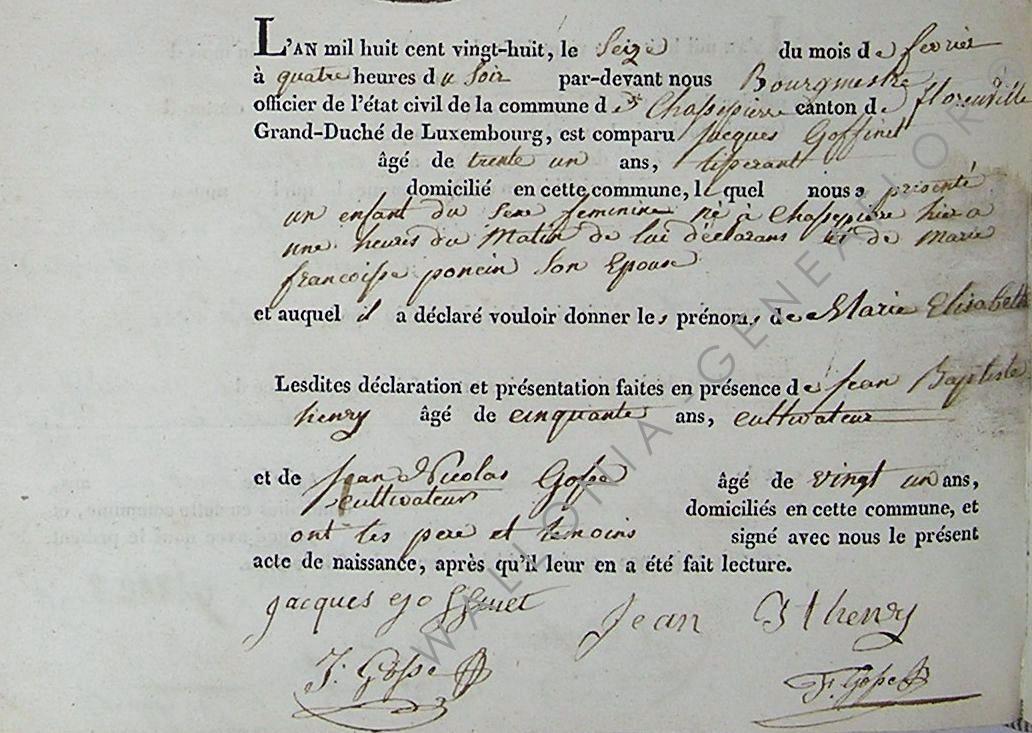 L'AN mil huit cent vingt-huit, le Seize du mois de fevrier
à quatre heures du Soir par-devant nous Bourgmestre
officier de l'état civil de la commune de Chassepierre canton de florenville
Grand-Duché de Luxembourg, est comparu Jacques Goffinet
âgé de trente un ans, tisserant
domicilié en cette commune, le quel nous a présenté
un enfant du sexe feminine né à Chassepierre hier a
une heures du Matin de lui déclarans et de Marie
francoisse poncin Son Epouse
et auquel il a déclaré vouloir donner les prénoms de Marie Elisabeth
Lesdites déclaration et présentation faites en présence de Jean Baptiste
henry âgé de cinquante ans, cultivateur
et de Jean Nicolas Gosse âgé de vingt un ans,
cultivateur domiciliés en cette commune, et
ont les pere et temoins signé avec nous le présent
acte de naissance, après qu'il leur en a été fait lecture.
Jacques goffinet Jean Bt henry
J. Gosse F. Gosse
WALLONIA GENEALOR